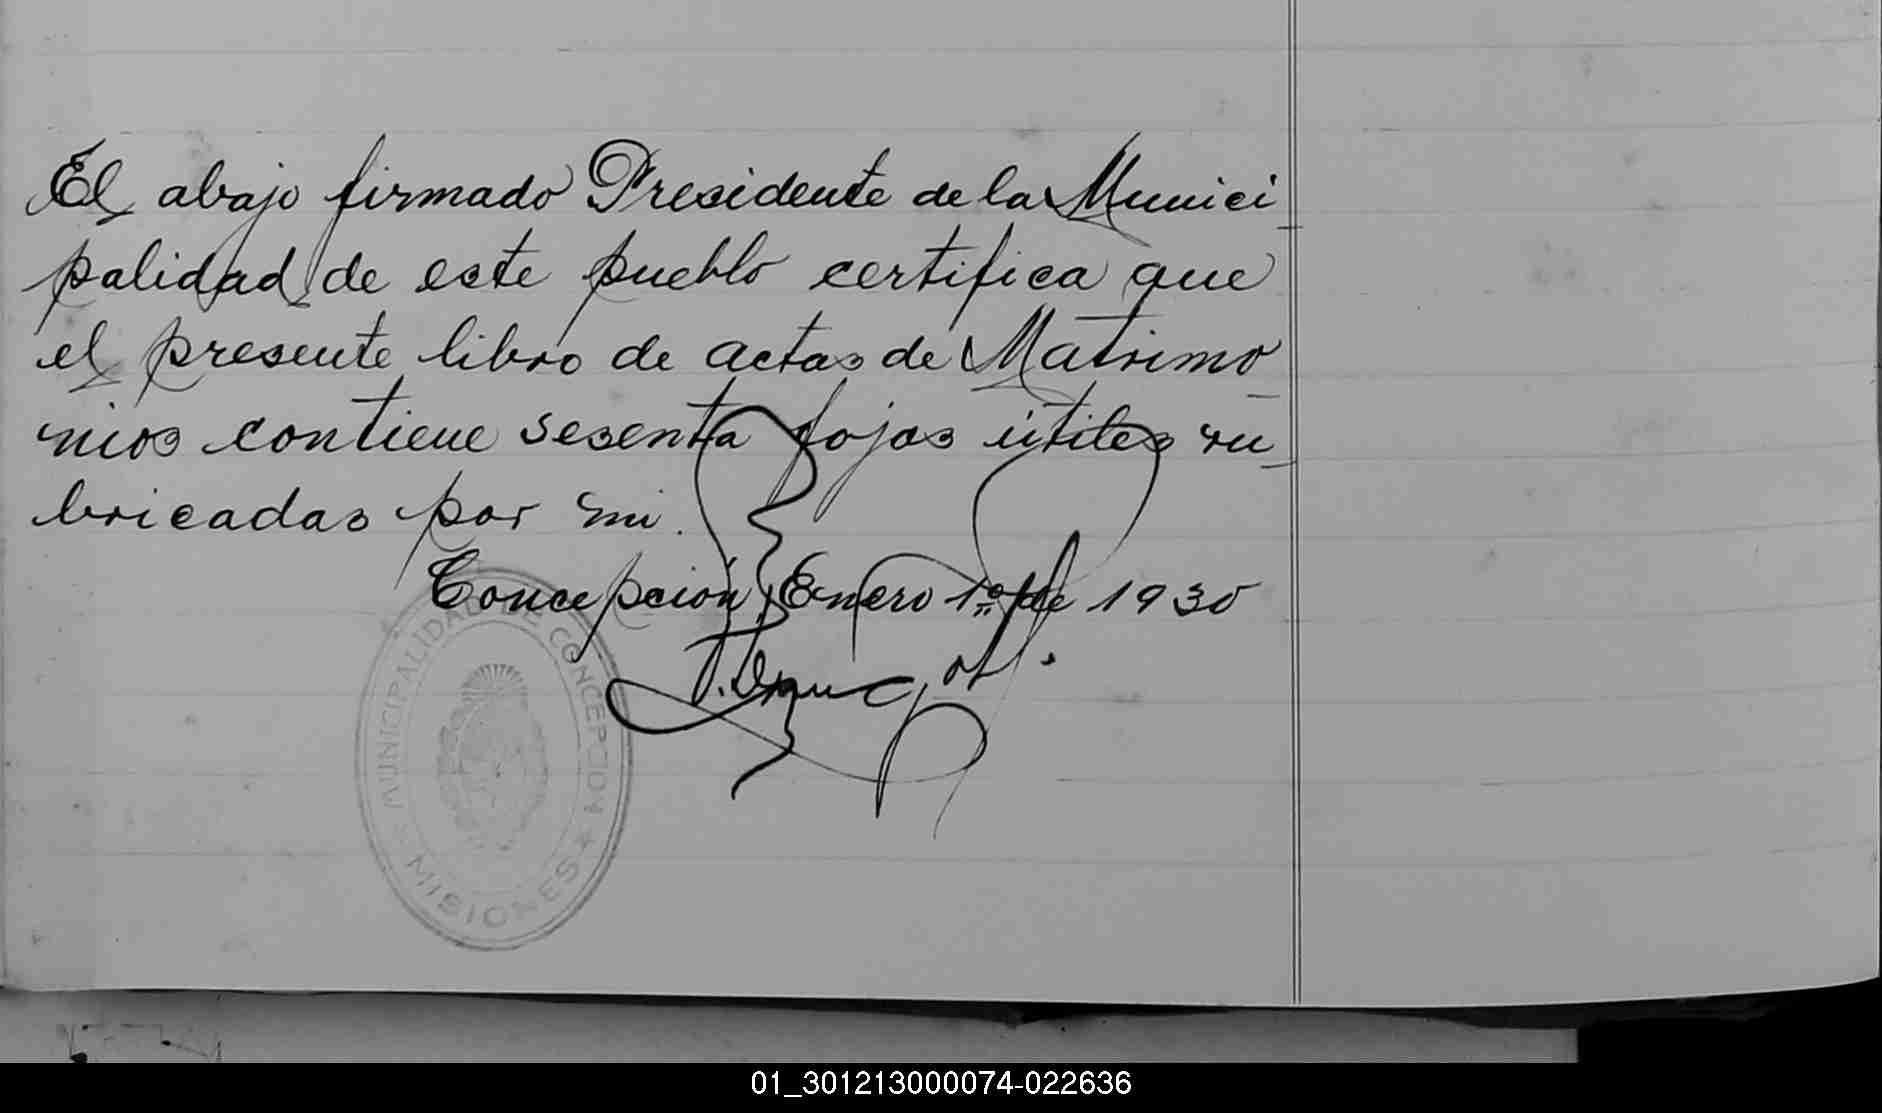 El abajo firmado Presidente de la Munici
palidad de este pueblo certifica que
el presente libro de actas de Matrimo_
nios contiene sesenta fojas útiles ru_
bricadas por mi.
Concepción, Enero 1º de 1930
MUNICIPALIDAD DE CONCEPCION
MISIONES
01_301213000074-022636